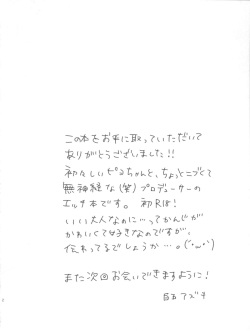 この本をお手に取っていただいて
ありがとうございました!!
初々しいピュちゃんと、ちょっとニブくて
無神経な(笑)プロデューサーの
エッチ本です。 初R18!
いい大人なのに…ってかんじが
かわいくて好きなのですが、
伝わってるでしょうか…。(´・ω・`)
また次回お会いできますように!